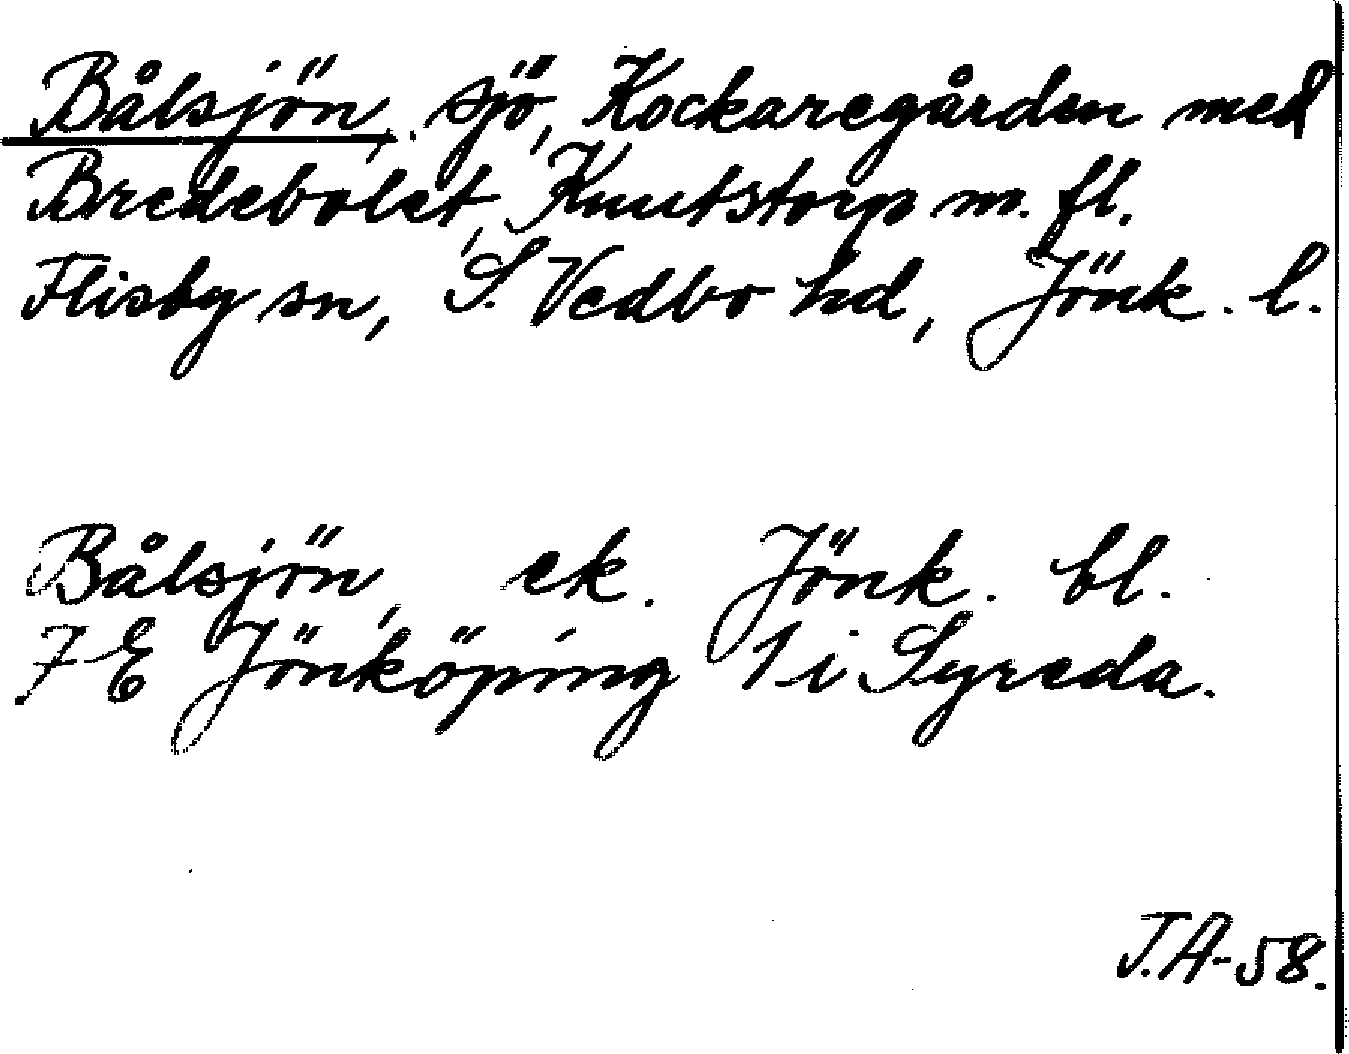 Bålsjön, sjö, Kockaregården med
Bredebolet, Knutstorp m. fl.
Flisby sn, S. Vedbo hd, Jönk. l.
Bålsjön, ek. Jönk. bl.
7 E Jönköping 1 i Syreda.
J.A-58.